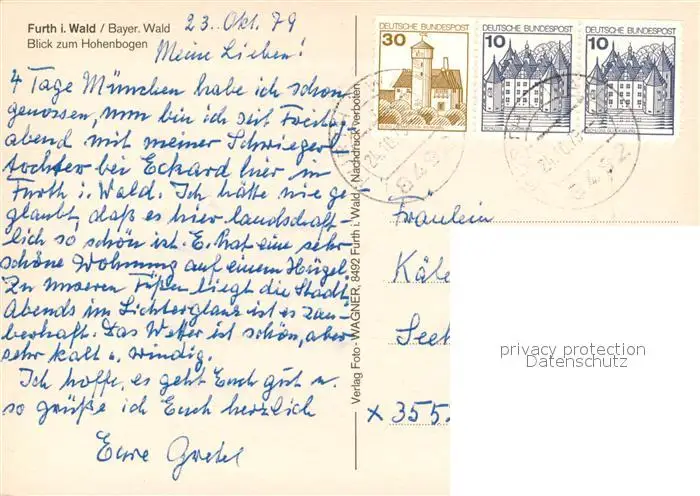 Furth i. Wald / Bayer. Wald
Blick zum Hohenbogen
23. Okt. 79
Meine Lieben!
4 Tage München habe ich schon
genossen, nun bin ich seit Freitag
abend mit meiner Schwieger
tochter bei Eckard hier in
Furth i. Wald. Ich hätte nie ge-
glaubt, daß es hier landschaft-
lich so schön ist. E. hat eine sehr
schöne Wohnung auf einem Hügel.
Zu unseren Füßen liegt die Stadt.
Abends im Lichterglanz ist es zau-
berhaft. Das Wetter ist schön, aber
sehr kalt u. windig.
Ich hoffe, es geht Euch gut u.
so grüße ich Euch herzlich
Eure Gretel
Verlag Foto - WAGNER, 8492 Furth i. Wald - Nachdruck verboten
DEUTSCHE BUNDESPOST
30
DEUTSCHE BUNDESPOST
10
DEUTSCHE BUNDESPOST
10
24.10.79
8492
24.10.79
8492
Fräulein
Käte
Seeh
x 355
privacy protection
Datenschutz